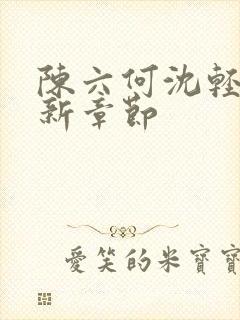 陳六何沈輕
新章節
愛笑的米寶寶